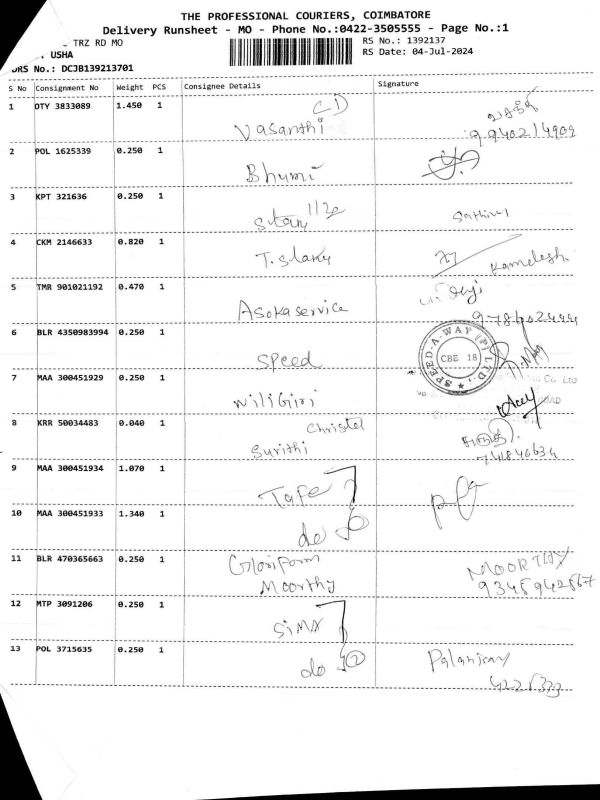 THE PROFESSIONAL COURIERS, COIMBATORE
Delivery Runsheet - MO - Phone No.:0422-3505555 - Page No.:1
TRZ RD MO
RS No.: 1392137
USHA
RS Date: 04-Jul-2024
DRS No.: DCJB139213701
S No Consignment No Weight PCS Consignee Details Signature
1 DTY 3833089 1.450 1
Vasanthi
2 POL 1625339 0.250 1
Bhumi
3 KPT 321636 0.250 1
4 CKM 2146633 0.820 1
Kamelesh
5 TMR 901021192 0.470 1
Asoka service
6 BLR 4350983994 0.250 1
Speed
SPEED-A-WAY (P) LTD.
CBE 18
7 MAA 300451929 0.250 1
Niligiri
8 KRR 50034483 0.040 1
Christel
Surithi
9 MAA 300451934 1.070 1
Tafe
10 MAA 300451933 1.340 1
do
11 BLR 470365663 0.250 1
Moorthy MOORTHY
12 MTP 3091206 0.250 1
SiMA
13 POL 3715635 0.250 1
do 2